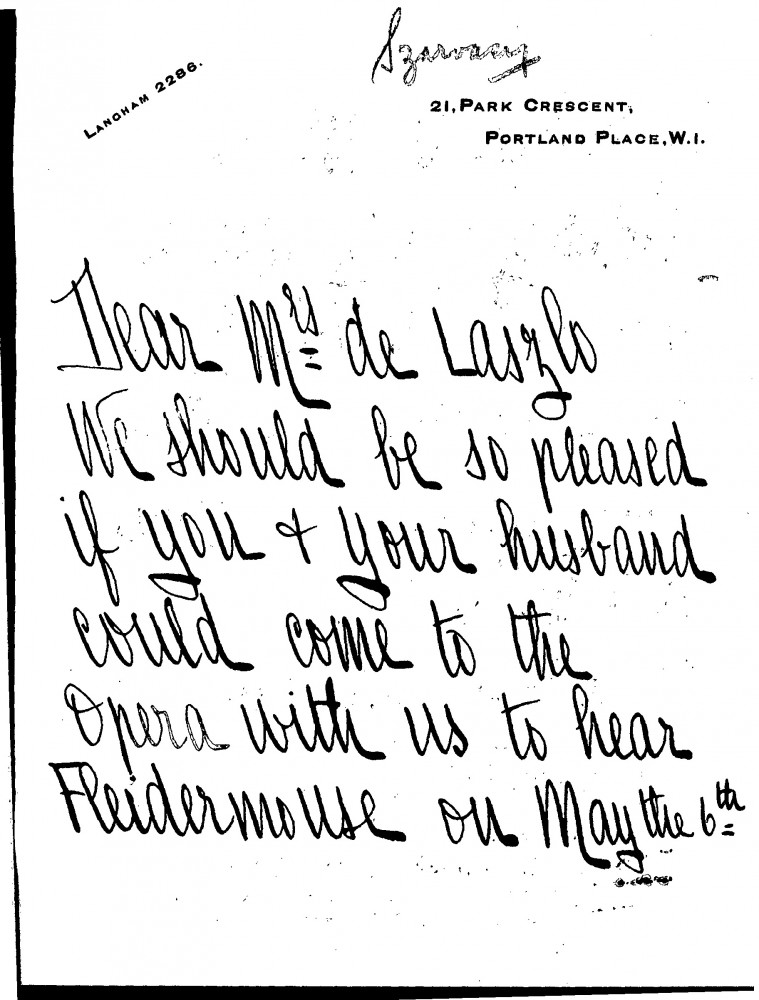 Szarvasy
LANGHAM 2286.
21, PARK CRESCENT,
PORTLAND PLACE, W.1.
Dear Mrs de Laszlo
We should be so pleased
if you & your husband
could come to the
Opera with us to hear
Fleidermouse on May the 6th